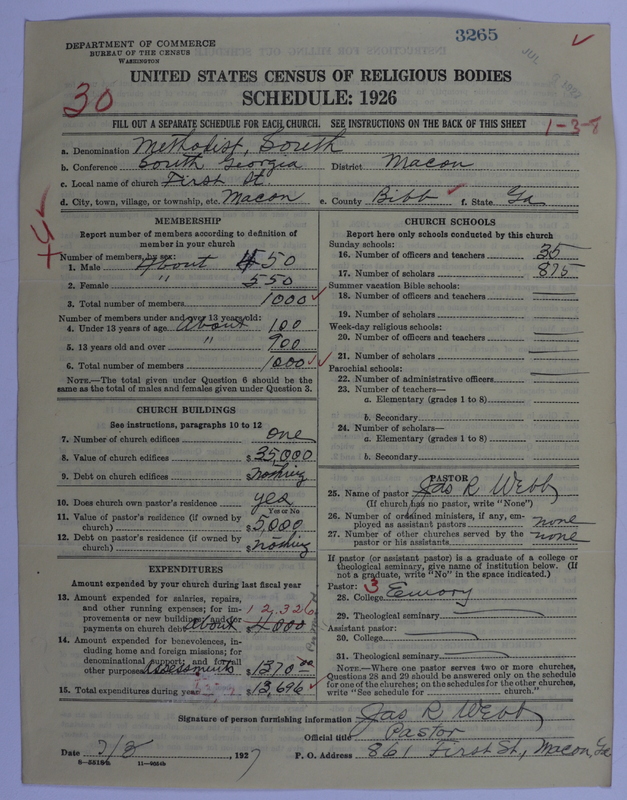 3265
DEPARTMENT OF COMMERCE
BUREAU OF THE CENSUS
WASHINGTON
JUL
UNITED STATES CENSUS OF RELIGIOUS BODIES
30
SCHEDULE: 1926
FILL OUT A SEPARATE SCHEDULE FOR EACH CHURCH. SEE INSTRUCTIONS ON THE BACK OF THIS SHEET
1-3-8
a. Denomination Methodist, South
b. Conference South Georgia District Macon
c. Local name of church First St.
d. City, town, village, or township, etc. Macon e. County Bibb f. State Ga
MEMBERSHIP
Report number of members according to definition of
member in your church
Number of members, by sex:
1. Male About 450
2. Female " 550
3. Total number of members 1000
Number of members under and over 13 years old:
4. Under 13 years of age About 100
5. 13 years old and over " 900
6. Total number of members 1000
NOTE.—The total given under Question 6 should be the
same as the total of males and females given under Question 3.
CHURCH BUILDINGS
See instructions, paragraphs 10 to 12
7. Number of church edifices one
8. Value of church edifices $ 35,000
9. Debt on church edifices $ nothing
10. Does church own pastor's residence yes
Yes or No
11. Value of pastor's residence (if owned by
church) $ 5,000
12. Debt on pastor's residence (if owned by
church) $ nothing
EXPENDITURES
Amount expended by your church during last fiscal year
13. Amount expended for salaries, repairs,
and other running expenses; for im-
provements or new buildings; and for
payments on church debt about $ 4000
12,326
14. Amount expended for benevolences, in-
cluding home and foreign missions; for
denominational support; and for all
other purposes Assessments $ 1370.00
15. Total expenditures during year $ 13,696
CHURCH SCHOOLS
Report here only schools conducted by this church
Sunday schools:
16. Number of officers and teachers 35
17. Number of scholars 875
Summer vacation Bible schools:
18. Number of officers and teachers
19. Number of scholars
Week-day religious schools:
20. Number of officers and teachers
21. Number of scholars
Parochial schools:
22. Number of administrative officers
23. Number of teachers—
a. Elementary (grades 1 to 8)
b. Secondary
24. Number of scholars—
a. Elementary (grades 1 to 8)
b. Secondary
PASTOR
25. Name of pastor Jas R Webb
(If church has no pastor, write "None")
26. Number of ordained ministers, if any, em-
ployed as assistant pastors none
27. Number of other churches served by the
pastor or his assistants none
If pastor (or assistant pastor) is a graduate of a college or
theological seminary, give name of institution below. (If
not a graduate, write "No" in the space indicated.)
Pastor: 3
28. College Emory
29. Theological seminary
Assistant pastor:
30. College
31. Theological seminary
NOTE.—Where one pastor serves two or more churches,
Questions 28 and 29 should be answered only on the schedule
for one of the churches; on the schedules for the other churches,
write "See schedule for church."
Signature of person furnishing information Jas R Webb
Official title Pastor
Date 7/8, 1927 P. O. Address 861 First St, Macon, Ga